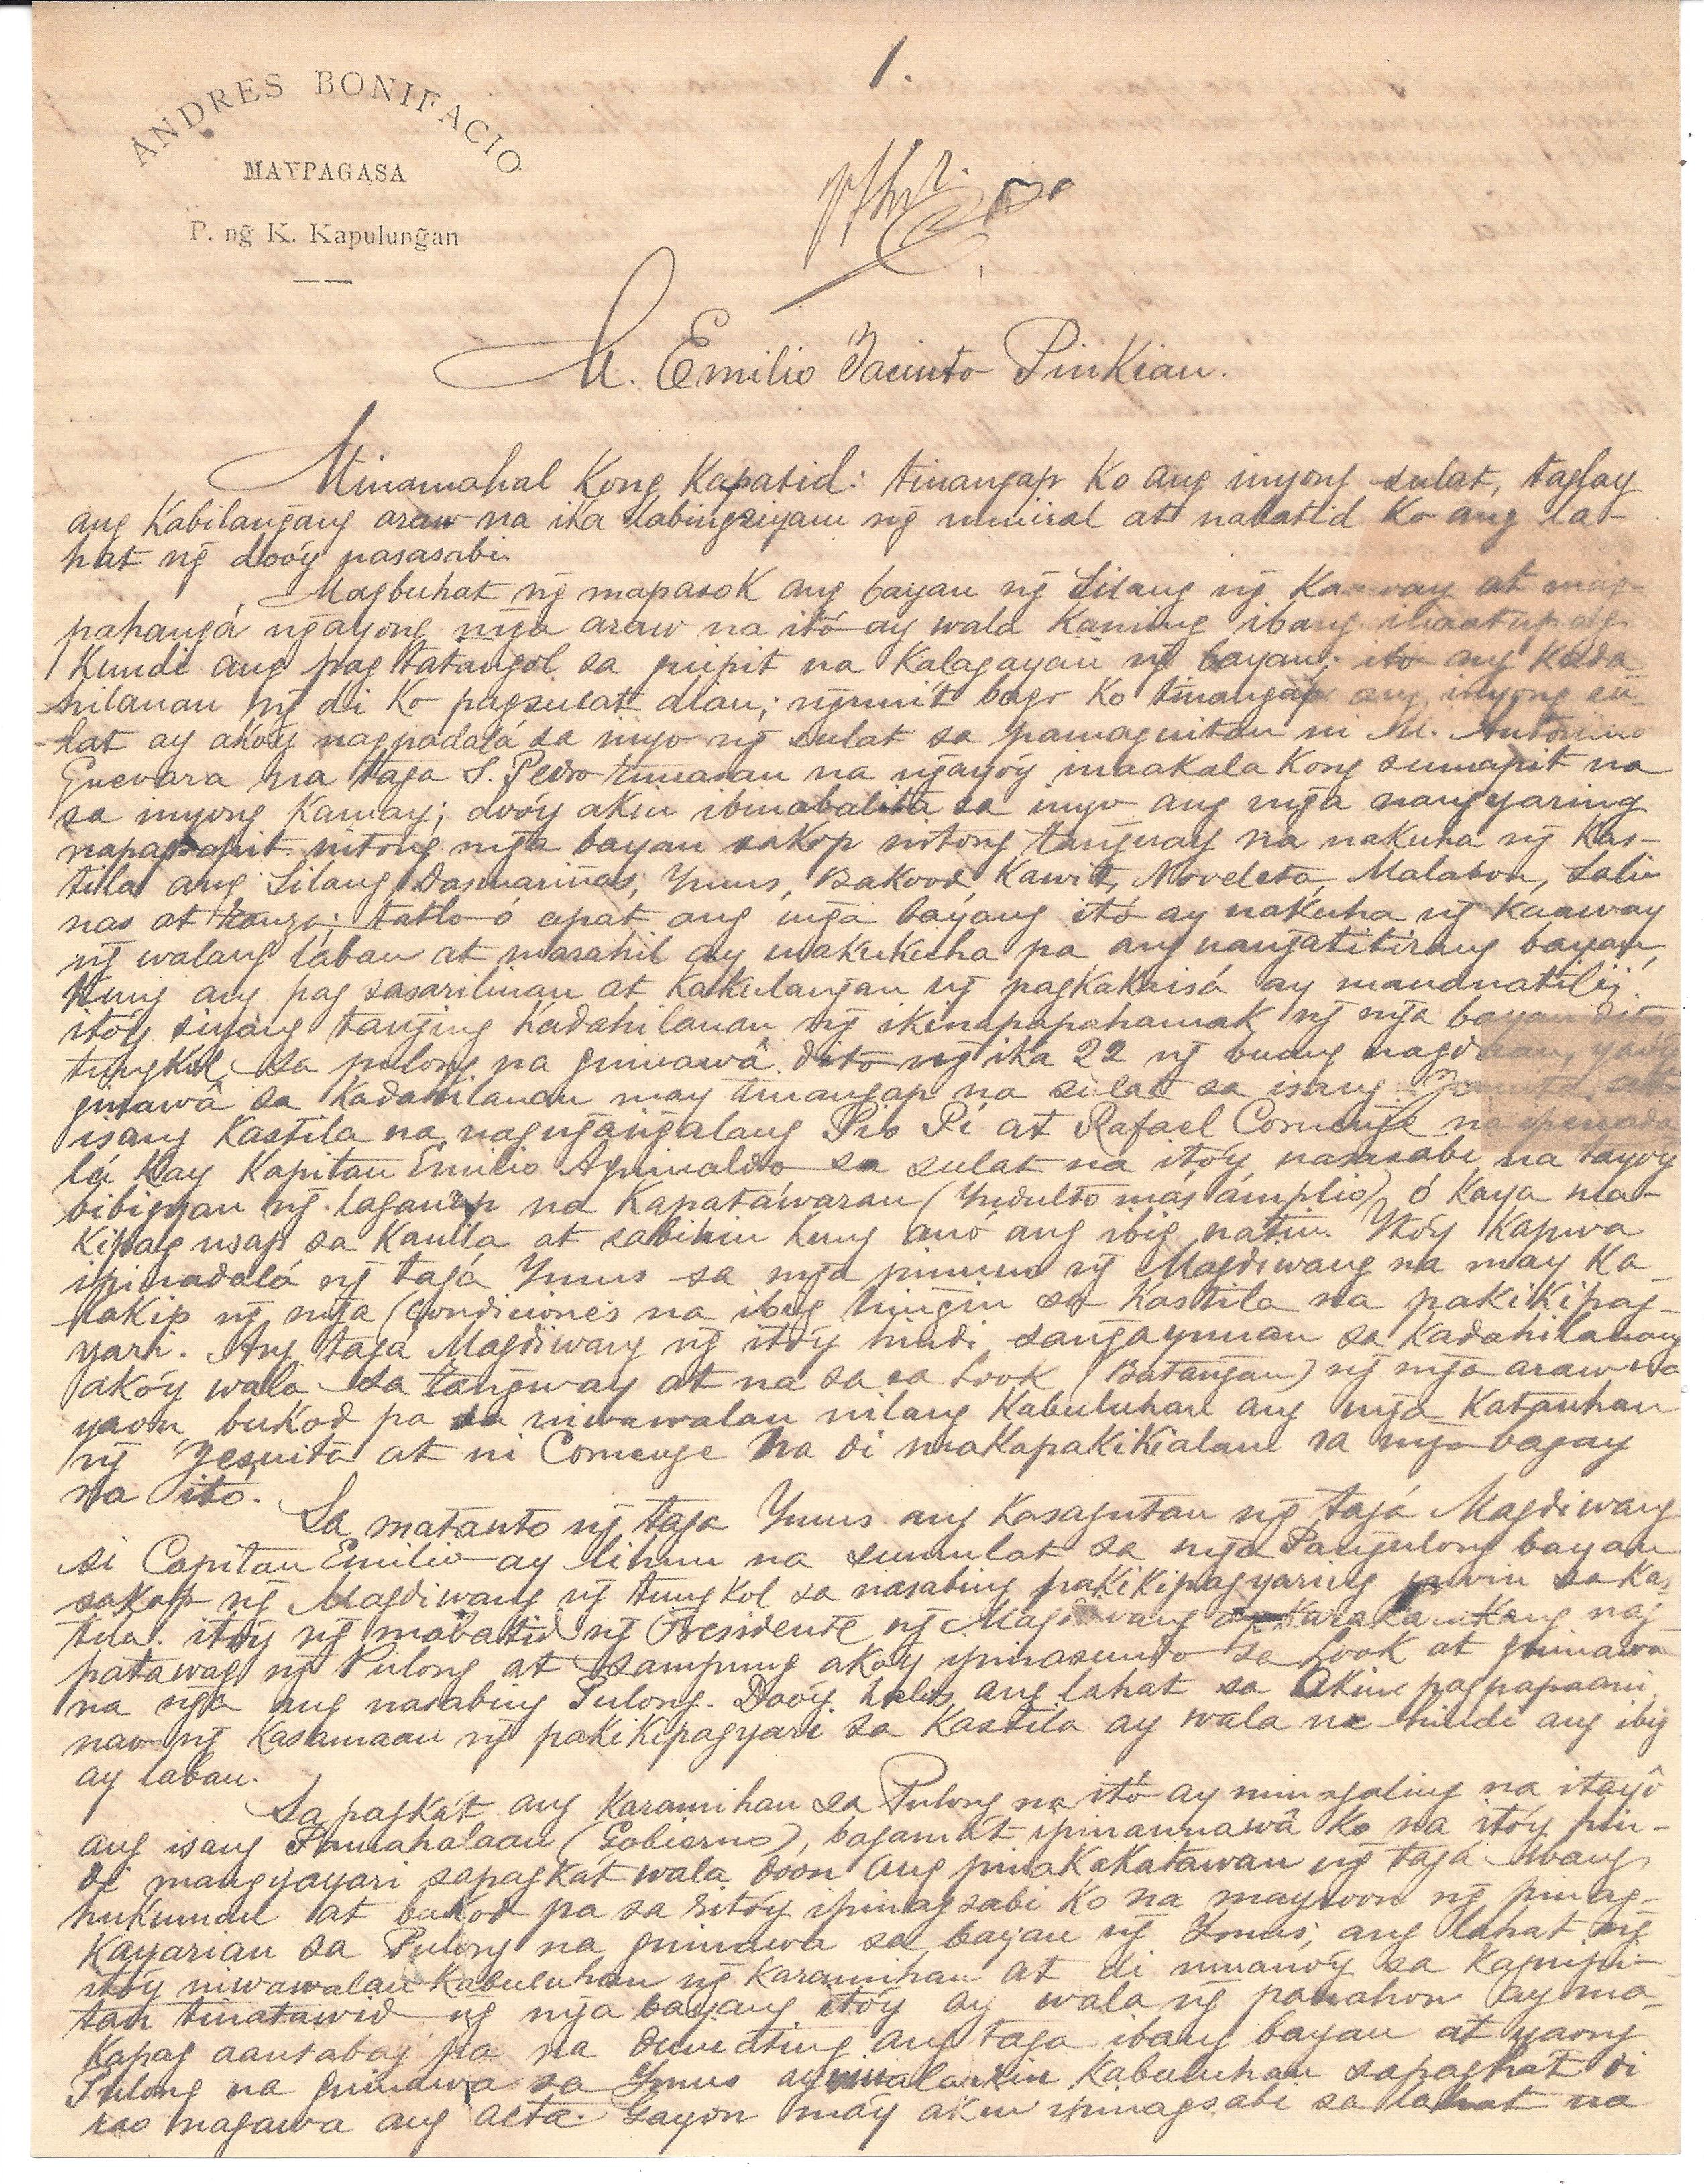 1.
ANDRES BONIFACIO
MAYPAGASA
P. ng̃ K. Kapulung̃an
M. Emilio Jacinto Pinkian.
Minamahal Kong Kapatid: tinangap Ko ang inyong sulat, taglay
ang Kabilang̃ang araw na ika labingsiyam ng̃ umiiral at nabatid Ko ang la-
hat ng̃ dooy nasasabi.
Magbuhat ng̃ mapasok ang bayan ng̃ Silang ng̃ Kaaway at mag-
pahangá ng̃ayong mg̃a araw na itó ay wala Kaming ibang inaatupag
Kundi ang pag tatangol sa guipit na Kalagayan ng̃ bayan; ito ang Kada
hilanan ng̃ di Ko pagsulat dian; ng̃unit bago Ko tinangap ang inyong su-
lat ay akóy nagpadalá sa inyo ng̃ sulat sa pamaguitan ni M. Antonino
Guevara na taga S. Pedro Tunasan na ng̃ayóy inaakala Kong sumapit na
sa inyong Kamay; dooy akin ibinabalita sa inyo ang mg̃a nangyaring
napagsapit nitong mg̃a bayan sakop nitong tang̃uay na nakuha ng̃ Kas-
tila ang Silang, Dasmariñas, Ymus, Bakood, Kawit, Noveleta, Malabon, Sali
nas at Tanza; tatlo ó apat ang mg̃a bayang itó ay nakuha ng̃ Kaaway
ng̃ walang laban at marahil ay makukuha pa ang nang̃atitirang bayan,
Kung ang pag sasarilinan at Kakulang̃an ng̃ pagkakaisá ay mamamatilij.
itóy siyang tang̃ing Kadahilanan ng̃ ikinapapahamak ng̃ mg̃a bayan dito
tungkol sa pulong na guinawâ dito ng̃ ika 22 ng̃ buang nagdaan, yaóy
guinawâ sa Kadahilanan may tinangap na sulat sa isang Jesuita at
isang Kastila na nagng̃ang̃alang Pio Pi at Rafael Comenge na ipinada
lá Kay Kapitan Emilio Aguinaldo sa sulat na itóy nasasabi na tayoy
bibigyan ng̃ laganap na Kapatáwaran (Yndulto más ámplio) ó Kaya ma-
kipag usap sa Kanila at sabihin Kung anó ang ibig natin. Ytóy Kapwa
ipinadalá ng̃ tagá Ymus sa mg̃a pinuno ng̃ Magdiwang na may Ka-
lakip ng̃ mg̃a (condiciones na ibig hing̃in sa Kastila na pakikipag-
yari. Ang tagá Magdiwang ng̃ itóy hindi sang̃aynunan sa Kadahilanang
akóy wala sa tang̃way at na sa sa Look (Batang̃an) ng̃ mg̃a araw na
yaon, bukod pa sa niwawalan nilang Kabuluhan ang mg̃a Katauhan
ng̃ Yesuita at ni Comenge na di makapakikialam sa mg̃a bagay
na itó.
Sa matanto ng̃ taga Ymus ang Kasagutan ng̃ tagá Magdiwang
si Capitan Emilio ay lihim na sumulat sa mg̃a Pang̃ulong bayan
sakop ng̃ Magdiwang ng̃ tungkol sa nasabing pakikipagyaring gawin sa Kas
tila. itóy ng̃ mabatid ng̃ Presidente ng̃ Magdiwang ay Karaka rakang nag-
patawag ng̃ Pulong at sampung akóy ipinasundo sa Look at guinawa
na ng̃a ang nasabing Pulong. Dooy halos ang lahat sa Akin pagpapaani
nao ng̃ Kasamaan ng̃ pakikipagyari sa Kastila ay wala na hindi ang ibig
ay laban.
Sa pagkát ang Karamihan sa Pulong na itó ay minagaling na itayô
ang isang Pamahalaan (Gobierno), bagamát ipinaunawâ Ko na itóy hin-
di mangyayari sapagkát wala doon ang pinakakatawan ng̃ tagá ibang
hukuman at bukod pa sa ritóy ipinagsabi Ko na mayroon ng̃ pinag-
Kayarian sa Pulong na guinawa sa bayan ng̃ Ymus; ang lahat ng̃
itóy niwawalan Kabuluhan ng̃ Karamihan at di umanóy sa Kaguipi-
tan tinatawid ng̃ mg̃a bayang itóy ay wala ng̃ panahon ay ma-
Kapag aantabay pa na dumating ang taga ibang bayan at yaong
Pulong na guinawa sa Ymus ay winalan din Kabuluhan sapagkát di
rao nagawa ang acta. Gayón may akin ipinagsabi sa lahat na